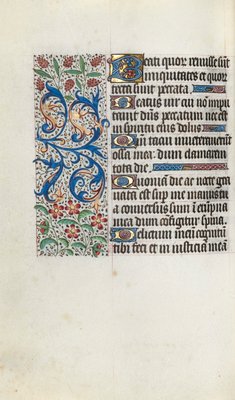 Beati quor remisse sūt
iniquitates et quor
tecta sunt peccata.
Beatus vir cui nō impu
tavit dn̄s peccatum nec est
in spiritu eius dolus
Qm̄ tacui inveteraverunt
ossa mea: dum clamarem
tota die.
Quoniā die ac nocte gra
vata est sup me manus tua
conversus sum ī erūpna
mea dum cōfigitur spina.
Delictum meū cognitū
tibi feci et in iusticiā meā